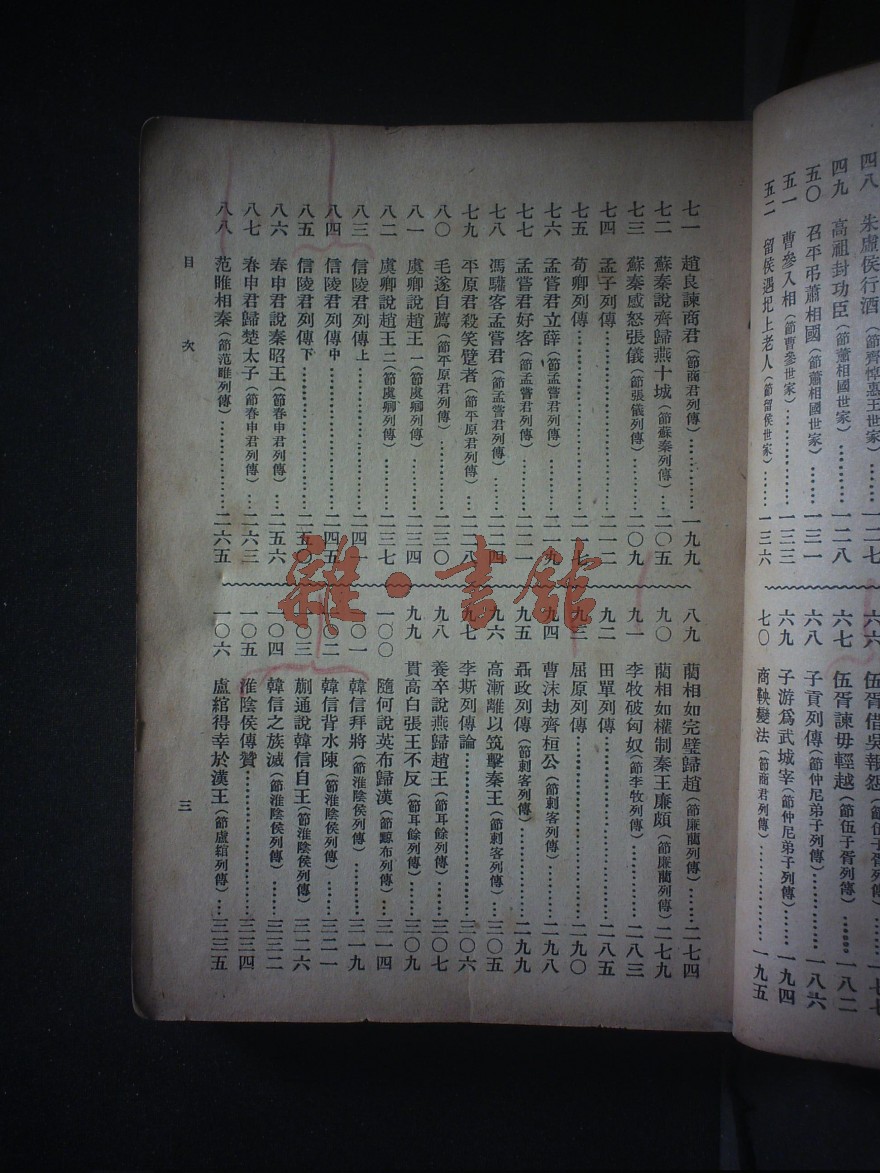 四八 朱虛侯行酒（節齊悼惠王世家）……一二七
四九 高祖封功臣（節蕭相國世家）……一二八
五〇 召平弔蕭相國（節蕭相國世家）……一三一
五一 曹參入相（節曹參世家）……一三三
五二 留侯遇圯上老人（節留侯世家）……一三六
六六 伍胥借吳報怨（節伍子胥列傳）……一七七
六七 伍胥諫毋輕越（節伍子胥列傳）……一八二
六八 子貢列傳（節仲尼弟子列傳）……一八六
六九 子游爲武城宰（節仲尼弟子列傳）……一九四
七〇 商鞅變法（節商君列傳）……一九五
七一 趙良諫商君（節商君列傳）……一九九
七二 蘇秦說齊歸燕十城（節蘇秦列傳）……二〇五
七三 蘇秦感怒張儀（節張儀列傳）……二〇九
七四 孟子列傳……二一二
七五 荀卿列傳……二一七
七六 孟嘗君立薛（節孟嘗君列傳）……二一九
七七 孟嘗君好客（節孟嘗君列傳）……二二一
七八 馮驩客孟嘗君（節孟嘗君列傳）……二二四
七九 平原君殺笑躄者（節平原君列傳）……二二八
八〇 毛遂自薦（節平原君列傳）……二三〇
八一 虞卿說趙王一（節虞卿列傳）……二三四
八二 虞卿說趙王二（節虞卿列傳）……二三七
八三 信陵君列傳上……二四一
八四 信陵君列傳中……二四五
八五 信陵君列傳下……二五〇
八六 春申君說秦昭王（節春申君列傳）……二五六
八七 春申君歸楚太子（節春申君列傳）……二六三
八八 范睢相秦（節范睢列傳）……二六五
八九 藺相如完璧歸趙（節廉藺列傳）……二七四
九〇 藺相如權制秦王廉頗（節廉藺列傳）二七九
九一 李牧破匈奴（節李牧列傳）……二八三
九二 田單列傳……二八五
九三 屈原列傳……二九〇
九四 曹沫劫齊桓公（節刺客列傳）……二九八
九五 聶政列傳（節刺客列傳）……二九九
九六 高漸離以筑擊秦王（節刺客列傳）……三〇五
九七 李斯列傳論……三〇六
九八 養卒說燕歸趙王（節耳餘列傳）……三〇七
九九 貫高白張王不反（節耳餘列傳）……三〇九
一〇〇 隨何說英布歸漢（節黥布列傳）……三一四
一〇一 韓信拜將（節淮陰侯列傳）……三一九
一〇二 韓信背水陳（節淮陰侯列傳）……三二一
一〇三 蒯通說韓信自王（節淮陰侯列傳）……三二六
一〇四 韓信之族滅（節淮陰侯列傳）……三三二
一〇五 淮陰侯傳贊……三三四
一〇六 盧綰得幸於漢王（節盧綰列傳）……三三五
目次
三
雜·書館